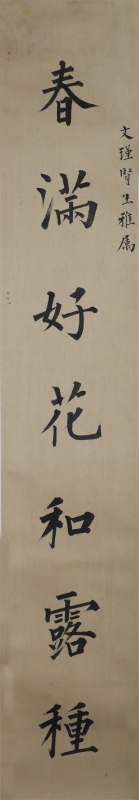 文瑾賢生雅属
春滿好花和露種